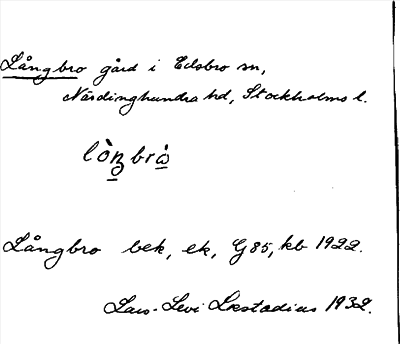 Långbro gård i Edsbro sn,
Närdinghundra hd, Stockholms l.
lòŋbrò
Långbro bek, ek, G85, kb 1922.
Lars-Levi Læstadius 1932.